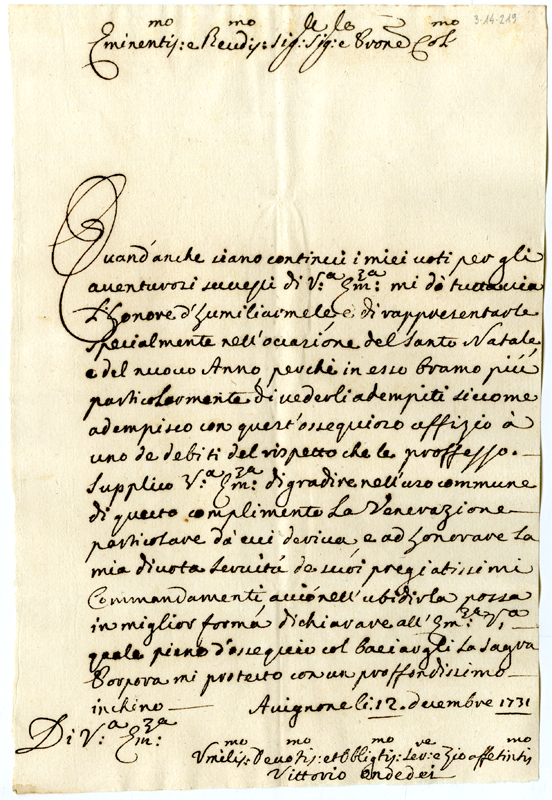 3-14-219
Eminentis:mo e Reudis:mo Sig:r Sig:r e Prone Col:mo
Quand'anche siano continui i miei uoti per gli
auenturosi successi di V:a Em:za mi dò tuttauia
l'honore d'humiliarmele e di rappresentarle
specialmente nell'occazione del Santo Natale
e del nuouo Anno, perchè in esso bramo più
particolarmente di uederli adempiti si come
adempisco con quest'ossequioso uffizio à
uno de debiti del rispetto che le proffesso.
Supplico V:a Em:za di gradire nell'uso commune
di questo complimento la Venerazione
particolare da cui deriua, e ad honorare la
mia diuota seruitù de suoi pregiatissimi
Commandamenti, acciò nell'ubidirla possa
in miglior forma dichiarare all'Em:za V:a
quale pieno d'ossequio col baciargli la Sagra
Porpora mi protesto con un proffondissimo
inchino Auignone li: 12. decembre 1731
Di V:a Em:za
Vmilis:mo Deuotis:mo et Obligtis:mo Ser:re e Zio affetintis:mo
Vittorio Ondedei